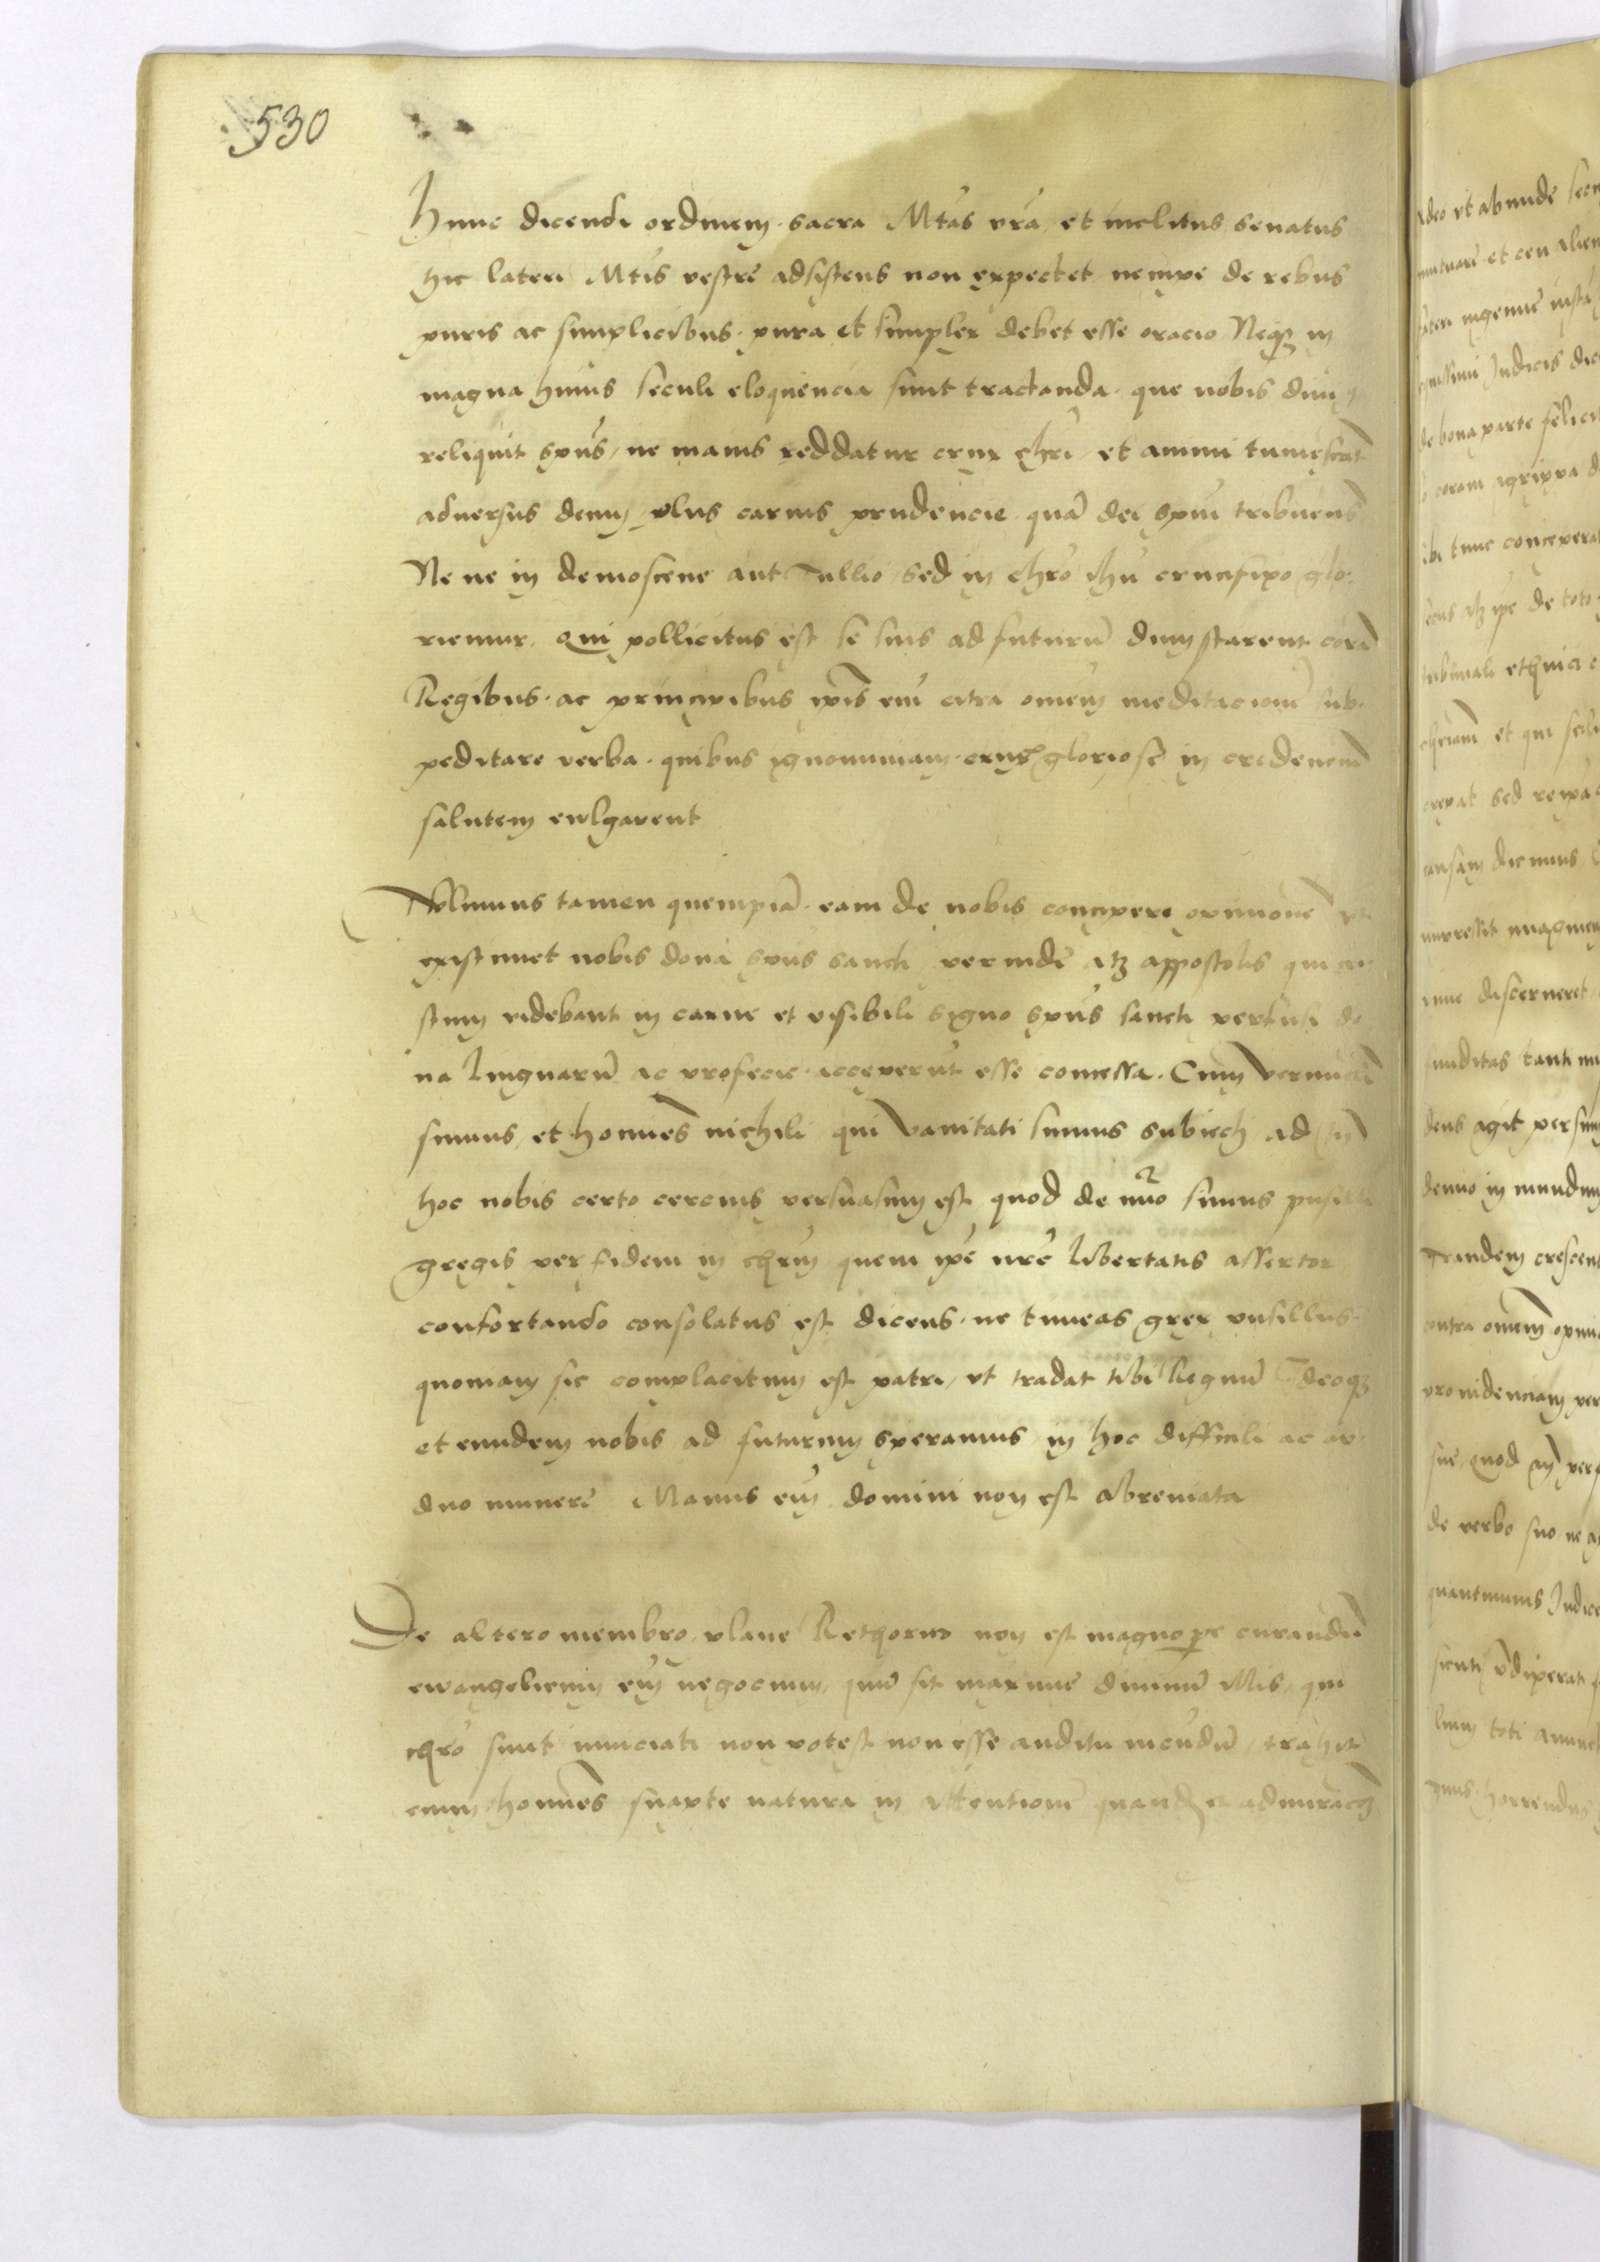 530
Hunc dicendi ordinem sacra Mtas vra et inclitus senatus
hic lateri Mtis vestre adsistens non expectet nempe de rebus
puris ac simplicibus pura et simplex debet esse oracio Neqz in
magna huius seculi eloquencia sunt tractanda que nobis diui
reliquit spus / ne inanis reddatur crux chri / et animi tumescat
aduersus deum plus carnis prudencie quā dei spui tribuens
Ne ne in demoscene aut Tullio sed in chro ihu crucifixo glo
riemur. Qui pollicitus est se suis adfuturū dum starent corā
Regibus ac principibus ipis em citra omem meditacionē sub
peditare verba quibus ignominiam crucis gloriose in credencium
salutem ewlgarent
Nolumus tamen quempiā eam de nobis concipere opinionē vt
existimet nobis dona spus sancti perinde atz appostolis qui cri
stum videbant in carne et visibili signo spus sancti perfusi do
na linguarū ac profecie acceperūt esse concessa. Cum vermiculi
simus / et homines nichili qui vanitati sumus subiecti ad
hoc nobis certo cercius persuasum est quod de nuo simus pusilli
gregis per fidem in chrm quem ipe nre libertatis assertor
confortando consolatus est dicens ne timeas grex pusillus
quoniam sic complacitum est patri / vt tradat tibi Regnū Ideoqz
et eundem nobis ad futurum speramus in hoc difficili ac ar
duo munere Manus em domini non est abreuiata
De altero membro plane Rethorico non est magnopere curandū
ewangelicum em negocium / quū sit maxime diuinū illis qui
chro sunt iniciati non potest non esse auditu iucundū / trahit
enim homines suapte natura in attentionē quandā et admiracōem
Adeo vt abunde
mutuare et ceu alien
fateri ingenue iusta
Iudicis dic
de bona parte felici
coram agrippa
ibi tunc conceperat
de toto
tribunali ethnici
et qui
sed
causam dicimus
impressit
discerneret
tanti
deus agit
denuo in mundum
Tandem crescent
contra omnem opinio
prouidenciam per
sue / quod
de verbo suo ne
quantumuis Iudice
sicuti
toti
horrendus